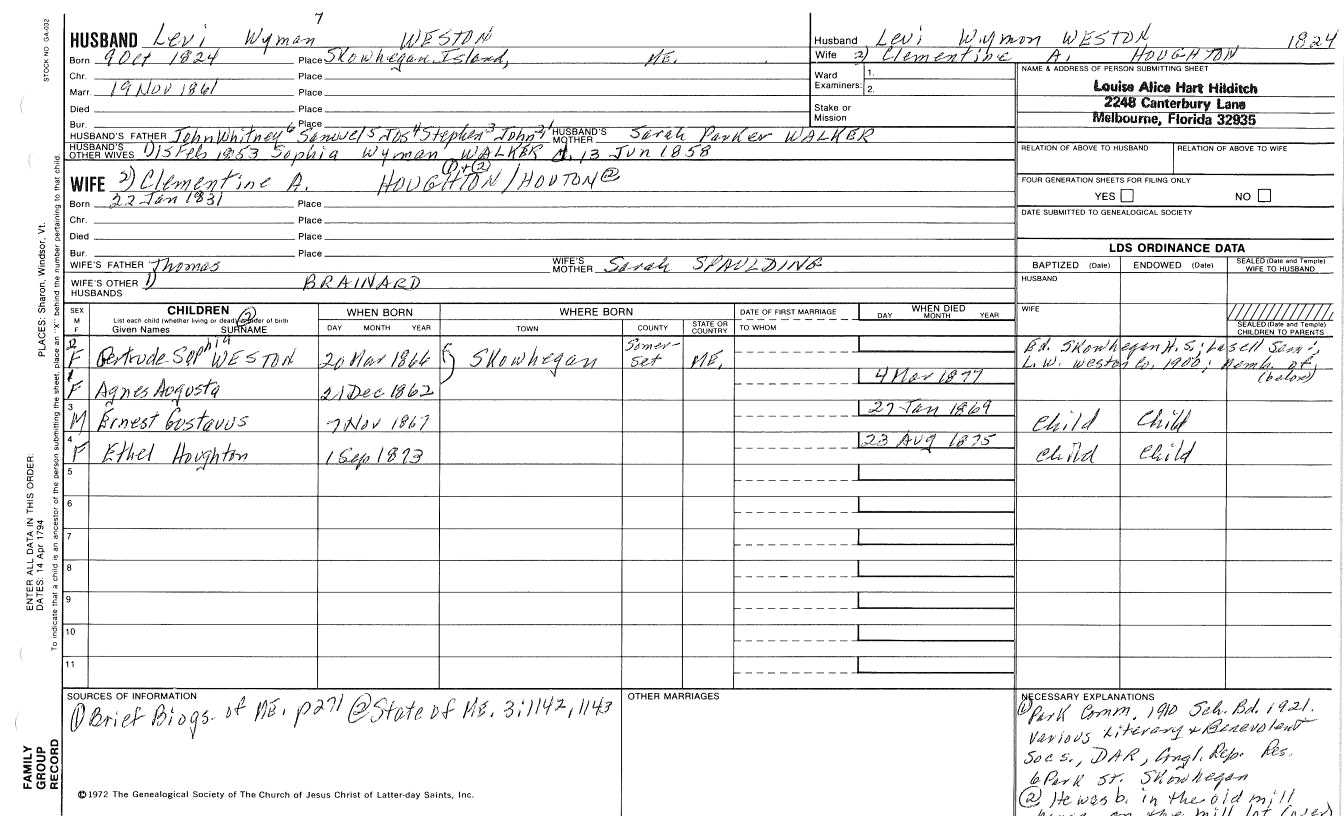 7
HUSBAND Levi Wyman WESTON
Born 9 Oct 1824 Place Skowhegan Island, ME.
Chr. Place
Marr. 19 Nov 1861 Place
Died Place
Bur. Place
HUSBAND'S FATHER John Whitney 6 Samuel 5 Jos 4 Stephen 3 John 21 HUSBAND'S MOTHER Sarah Parker WALKER
HUSBAND'S OTHER WIVES 1) 15 Feb 1853 Sophia Wyman WALKER d. 13 Jun 1858
① + ②
WIFE 2) Clementine A. HOUGHTON / HOUTON @
Born 22 Jan 1831 Place
Chr. Place
Died Place
Bur. Place
WIFE'S FATHER Thomas WIFE'S MOTHER Sarah SPAULDING
WIFE'S OTHER HUSBANDS 1) BRAINARD
Husband Levi Wymon WESTON 1824
Wife 2) Clementine A. HOUGHTON
Ward 1.
Examiners: 2.
Stake or
Mission
NAME & ADDRESS OF PERSON SUBMITTING SHEET
Louise Alice Hart Hilditch
2248 Canterbury Lane
Melbourne, Florida 32935
RELATION OF ABOVE TO HUSBAND RELATION OF ABOVE TO WIFE
FOUR GENERATION SHEETS FOR FILING ONLY
YES NO
DATE SUBMITTED TO GENEALOGICAL SOCIETY
LDS ORDINANCE DATA
BAPTIZED (Date) ENDOWED (Date) SEALED (Date and Temple) WIFE TO HUSBAND
HUSBAND
WIFE
SEALED (Date and Temple) CHILDREN TO PARENTS
SEX M F CHILDREN WHEN BORN WHERE BORN DATE OF FIRST MARRIAGE WHEN DIED
List each child (whether living or dead) in order of birth ②
Given Names SURNAME DAY MONTH YEAR TOWN COUNTY STATE OR COUNTRY TO WHOM DAY MONTH YEAR
2 F Gertrude Sophia WESTON 20 Mar 1866 Skowhegan Somer-set ME. Ed. Skowhegan H.S.; Lasell Sem;
L.W. Weston Co. 1900; Memb. of
(below)
1 F Agnes Augusta 21 Dec 1862 4 Mar 1877
3 M Ernest Gustavus 7 Nov 1867 27 Jan 1869 Child Child
4 F Ethel Houghton 1 Sep 1873 23 Aug 1875 Child Child
5
6
7
8
9
10
11
SOURCES OF INFORMATION
① Brief Biogs. of ME. p271 @ State of ME. 3:1142, 1143
©1972 The Genealogical Society of The Church of Jesus Christ of Latter-day Saints, Inc.
OTHER MARRIAGES
NECESSARY EXPLANATIONS
① Park Comm. 1910 Sch. Bd. 1921.
Various Literary & Benevolent
Socs., DAR, Congl. Rep. Res.
6 Park St. Skowhegan
② He was b. in the old mill
house on the mill lot (over)
STOCK NO. GA-032
PLACES: Sharon, Windsor, Vt.
ENTER ALL DATA IN THIS ORDER:
DATES: 14 Apr 1794
To indicate that a child is an ancestor of the person submitting the sheet, place an "X" behind the number pertaining to that child.
FAMILY
GROUP
RECORD